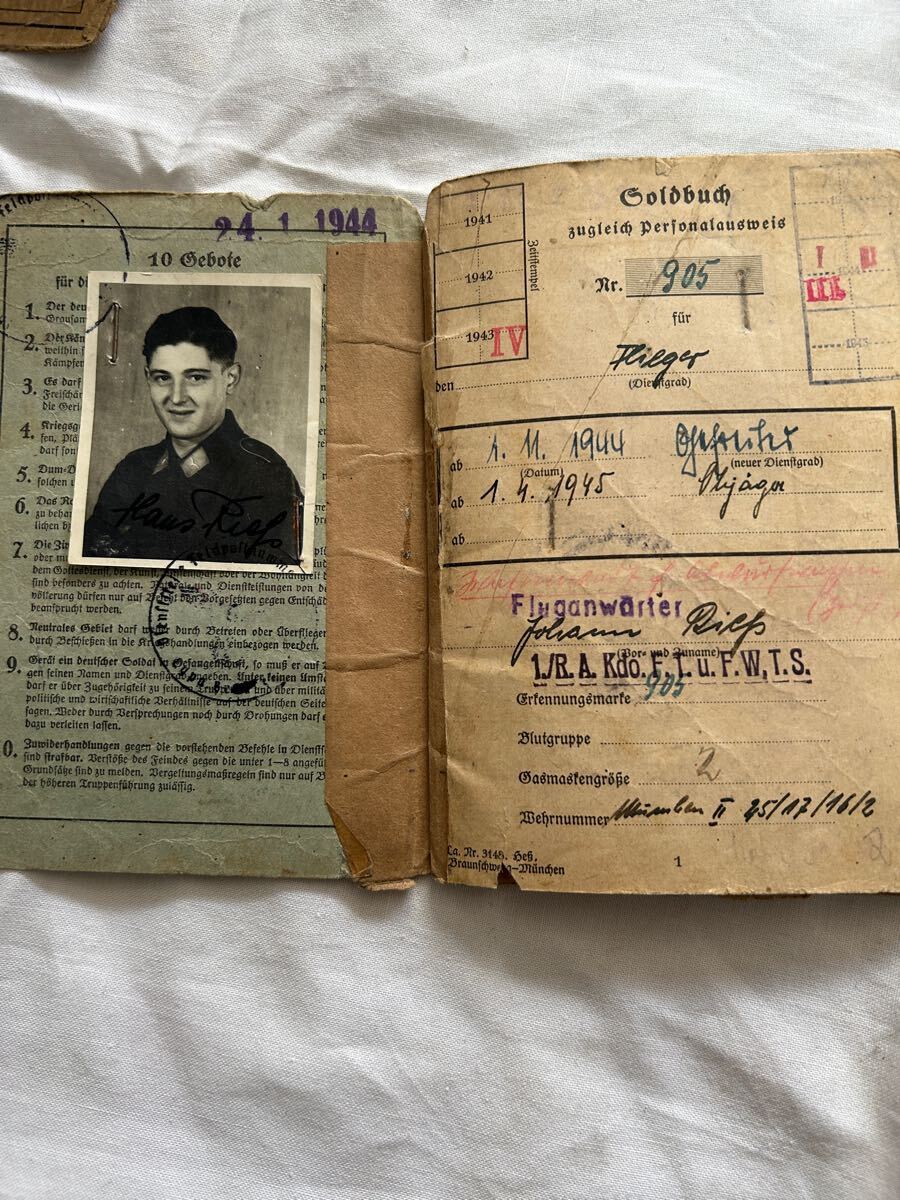 24. 1. 1944
10 Gebote
für di
1. Der deu
Grausam
2. Der Käm
weithin s
Kämpfer
3. Es darf
Freischär
die Gerie
4. Kriegsg
fen, Plä
darf son
5. Dum-D
solchen u
6. Das Ro
zu behan
lichen b
7. Die Ziv
oder mu
dem Gottesdienst, der Kunst, Wissenschaft oder der Wohltätigkeit d
sind besonders zu achten. Natural- und Dienstleistungen von de
völkerung dürfen nur auf Befehl von Vorgesetzten gegen Entschäd
beansprucht werden.
8. Neutrales Gebiet darf weder durch Betreten oder Überfliegen
durch Beschießen in die Kriegshandlungen einbezogen werden.
9. Gerät ein deutscher Soldat in Gefangenschaft, so muß er auf
gen seinen Namen und Dienstgrad angeben. Unter keinen Umst
darf er über Zugehörigkeit zu seinem Truppenteil und über militä
politische und wirtschaftliche Verhältnisse auf der deutschen Seite
sagen. Weder durch Versprechungen noch durch Drohungen darf e
dazu verleiten lassen.
0. Zuwiderhandlungen gegen die vorstehenden Befehle in Dienst
sind strafbar. Verstöße des Feindes gegen die unter 1—8 angefü
Grundsätze sind zu melden. Vergeltungsmaßregeln sind nur auf B
der höheren Truppenführung zulässig.
Hans Rieß
Dienststelle Feldpostnumme
Soldbuch
zugleich Personalausweis
1941
1942
1943 IV
Zeitstempel
I II
III
1945
Nr. 905
für
den Flieger
(Dienstgrad)
ab 1. 11. 1944 Gefreiter
(Datum) (neuer Dienstgrad)
ab 1. 4. 1945
ab
Fluganwärter
Johann Rieß
(Vor- und Zuname)
1./R. A. Kdo. F. L. u. F. W, T. S.
Erkennungsmarke 905
Blutgruppe
Gasmaskengröße 2
Wehrnummer München II 25/17/16/2
La. Nr. 3148. Heß,
Braunschweig—München
1